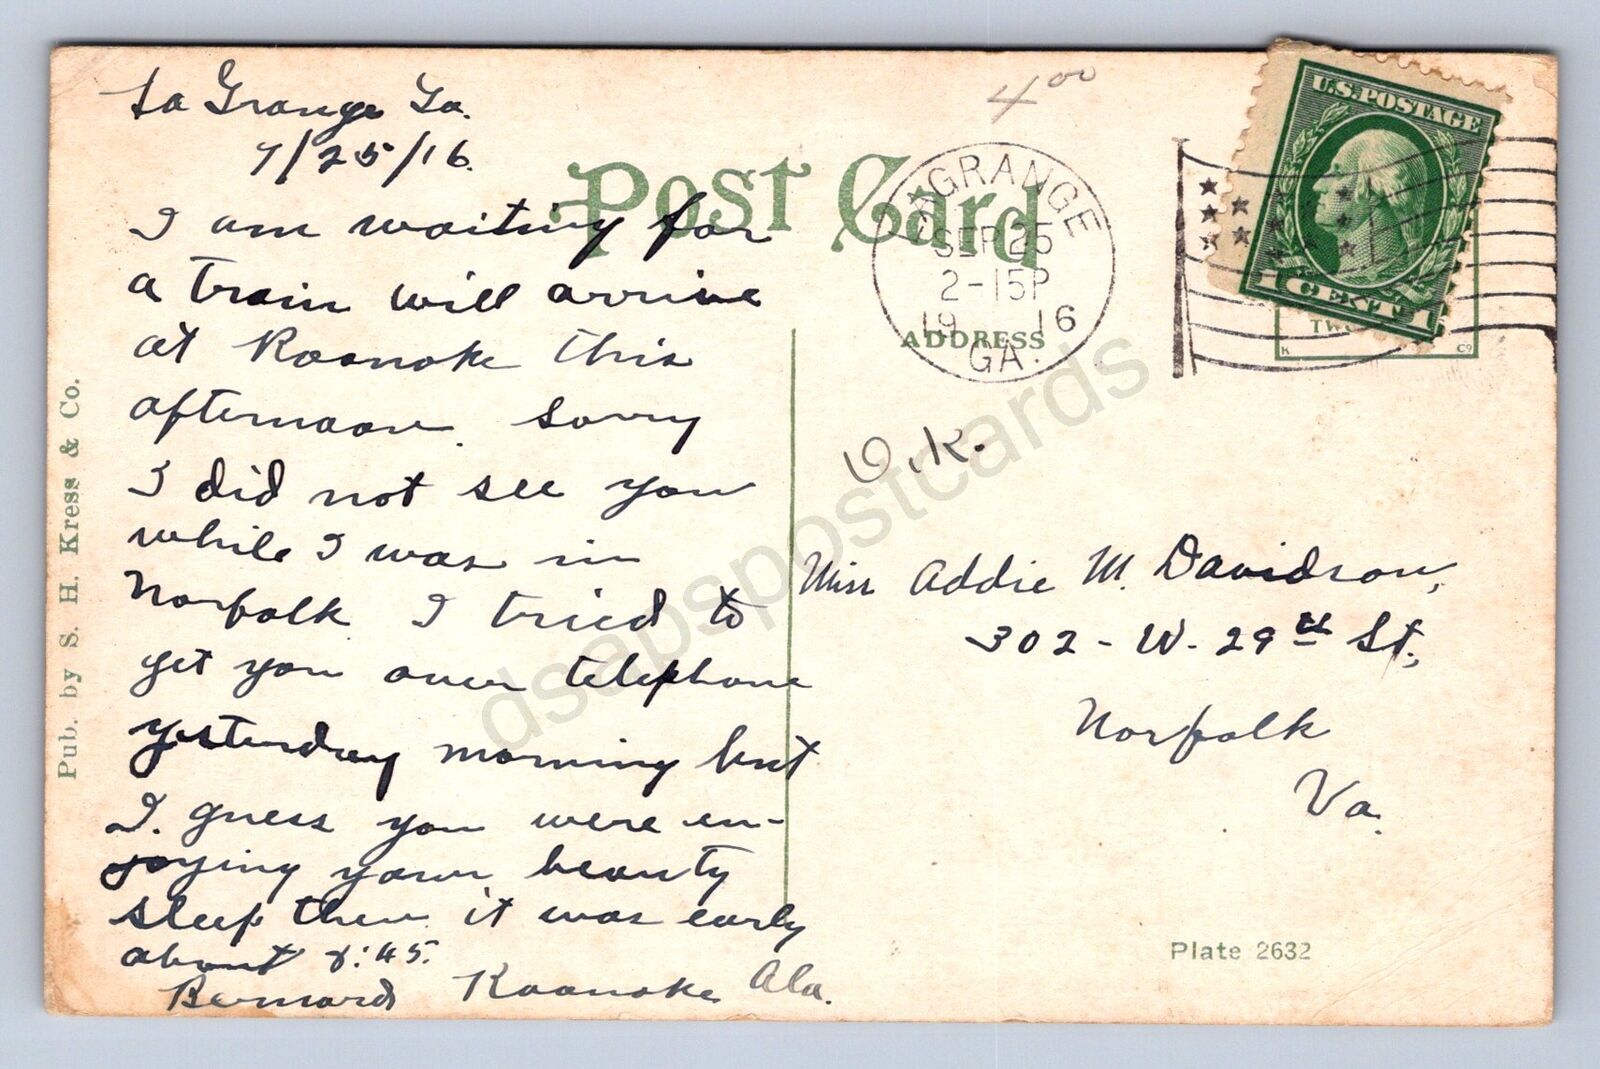 La Grange Ga.
9/25/16.
I am waiting for
a train will arrive
at Roanoke this
afternoon. Sorry
I did not see you
while I was in
Norfolk. I tried to
get you over telephone
yesterday morning but
I guess you were en-
joying your beauty
sleep then it was early
about 8:45.
Bernard Roanoke Ala.
Pub. by S. H. Kress & Co.
4 00
POST CARD
ADDRESS
LAGRANGE
SEP 25
2-15P
1916
GA.
U.S. POSTAGE
1 CENT 1
O.K.
Miss Addie M. Davidson,
302 - W. 29th St.,
Norfolk
Va.
Plate 2632
dsapspostcards